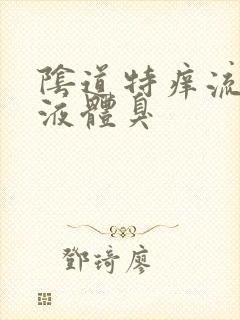 陰道特痒流
液體臭
鄧琦廖